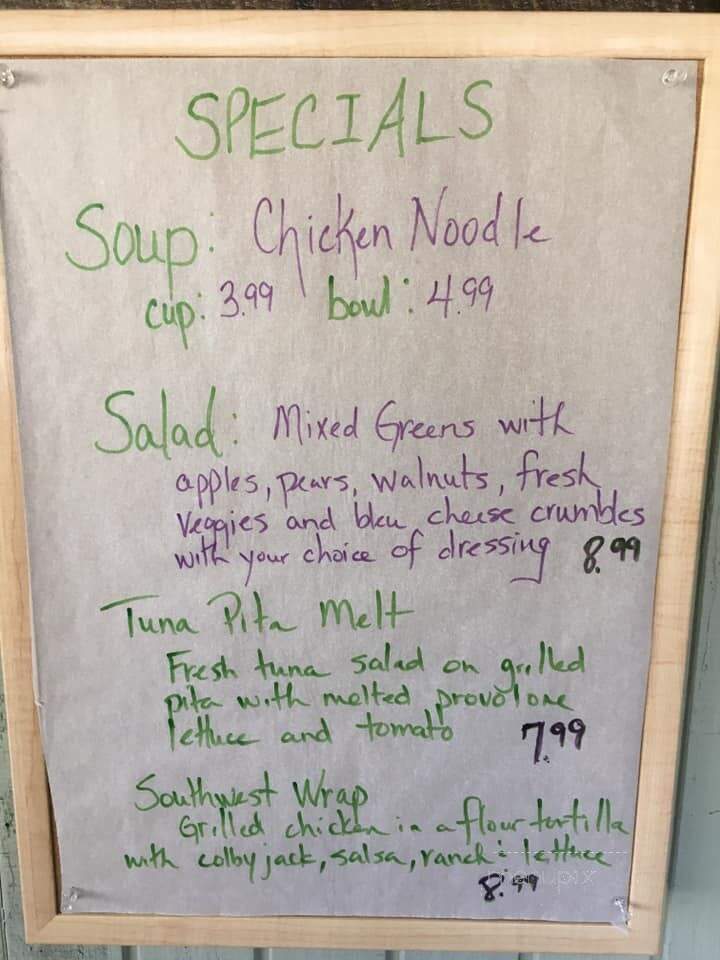 SPECIALS
Soup: Chicken Noodle
cup: 3.99 bowl: 4.99
Salad: Mixed Greens with
apples, pears, walnuts, fresh
Veggies and bleu cheese crumbles
with your choice of dressing 8.99
Tuna Pita Melt
Fresh tuna salad on grilled
pita with melted provolone
lettuce and tomato 7.99
Southwest Wrap
Grilled chicken in a flour tortilla
with colby jack, salsa, ranch & lettuce
8.99